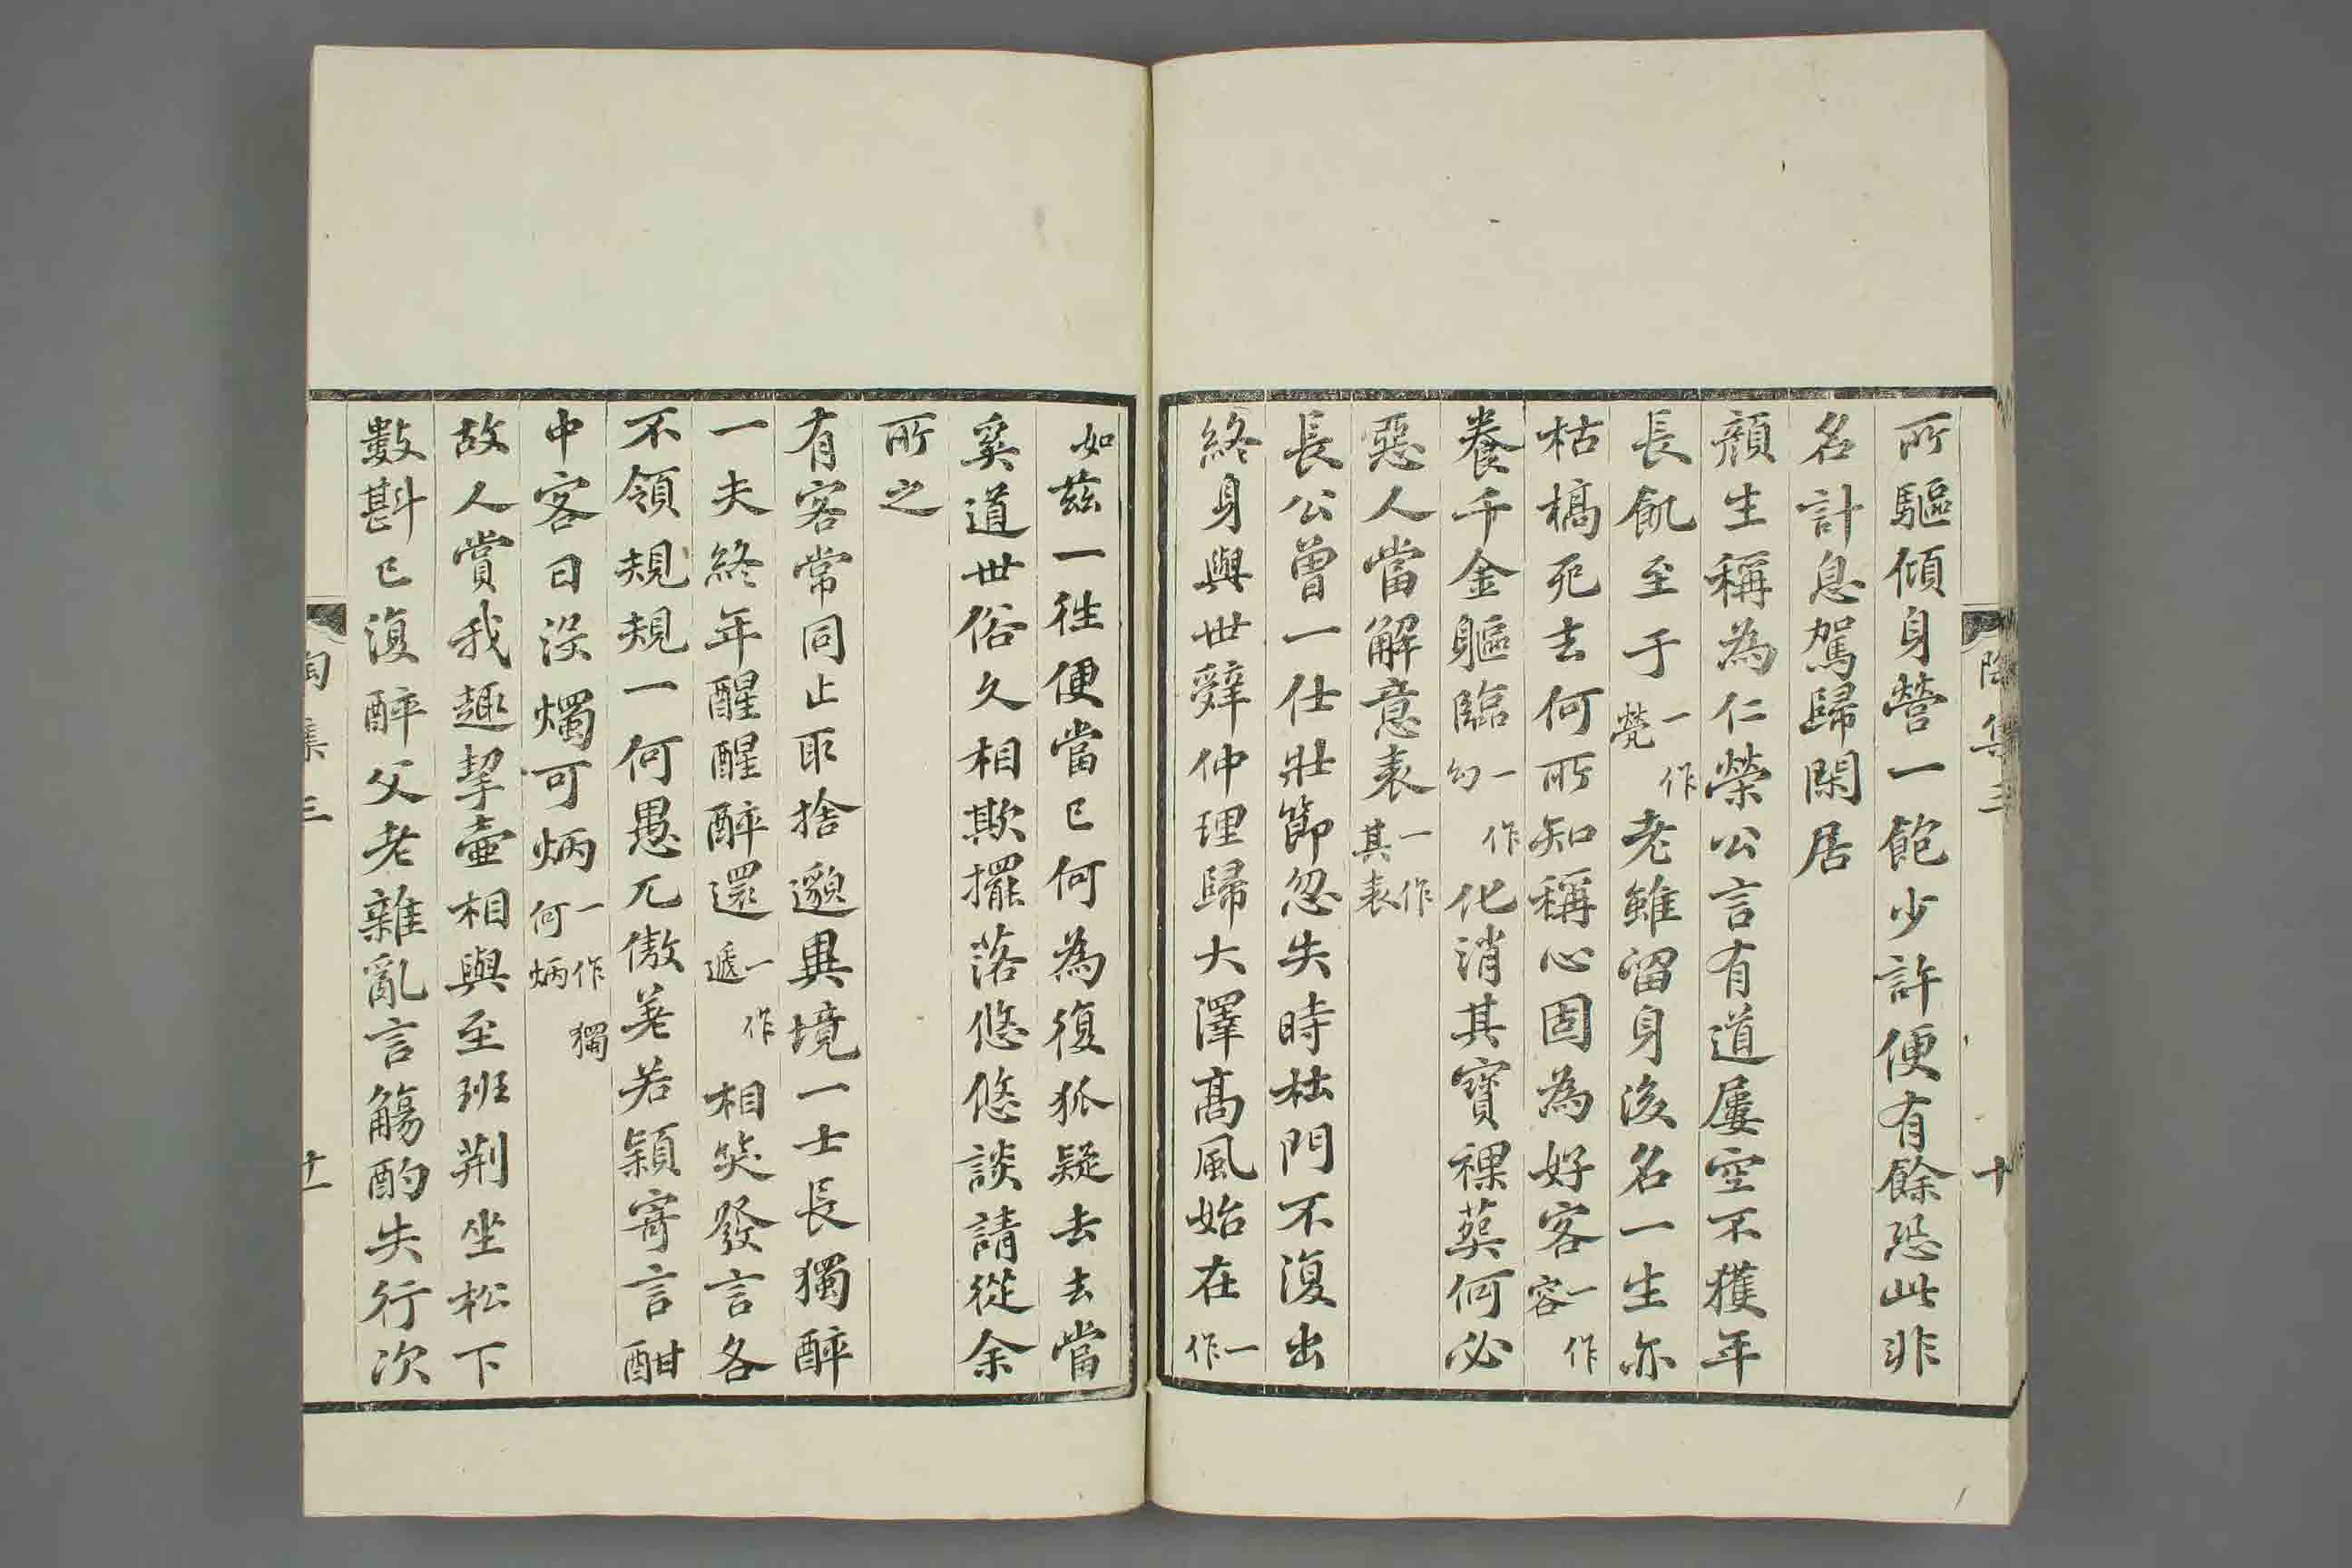 陶集三 十
所驅傾身營一飽少許便有餘恐此非
名計息駕歸閑居
顏生稱為仁榮公言有道屢空不獲年
長飢至于一作㷀老雖留身後名一生亦
枯槁死去何所知稱心固為好客一作容
養千金軀臨一作幻化消其寶裸葬何必
惡人當解意表一作其表
長公曾一仕壯節忽失時杜門不復出
終身與世辭仲理歸大澤高風始在一作
如茲一往便當已何為復狐疑去去當
奚道世俗久相欺擺落悠悠談請從余
所之
有客常同止取捨邈異境一士長獨醉
一夫終年醒醒醉還一作遞相笑發言各
不領規規一何愚兀傲差若穎寄言酣
中客日沒燭可炳一作獨何炳
故人賞我趣挈壺相與至班荆坐松下
數斟已復醉父老雜亂言觴酌失行次
陶集三 十一